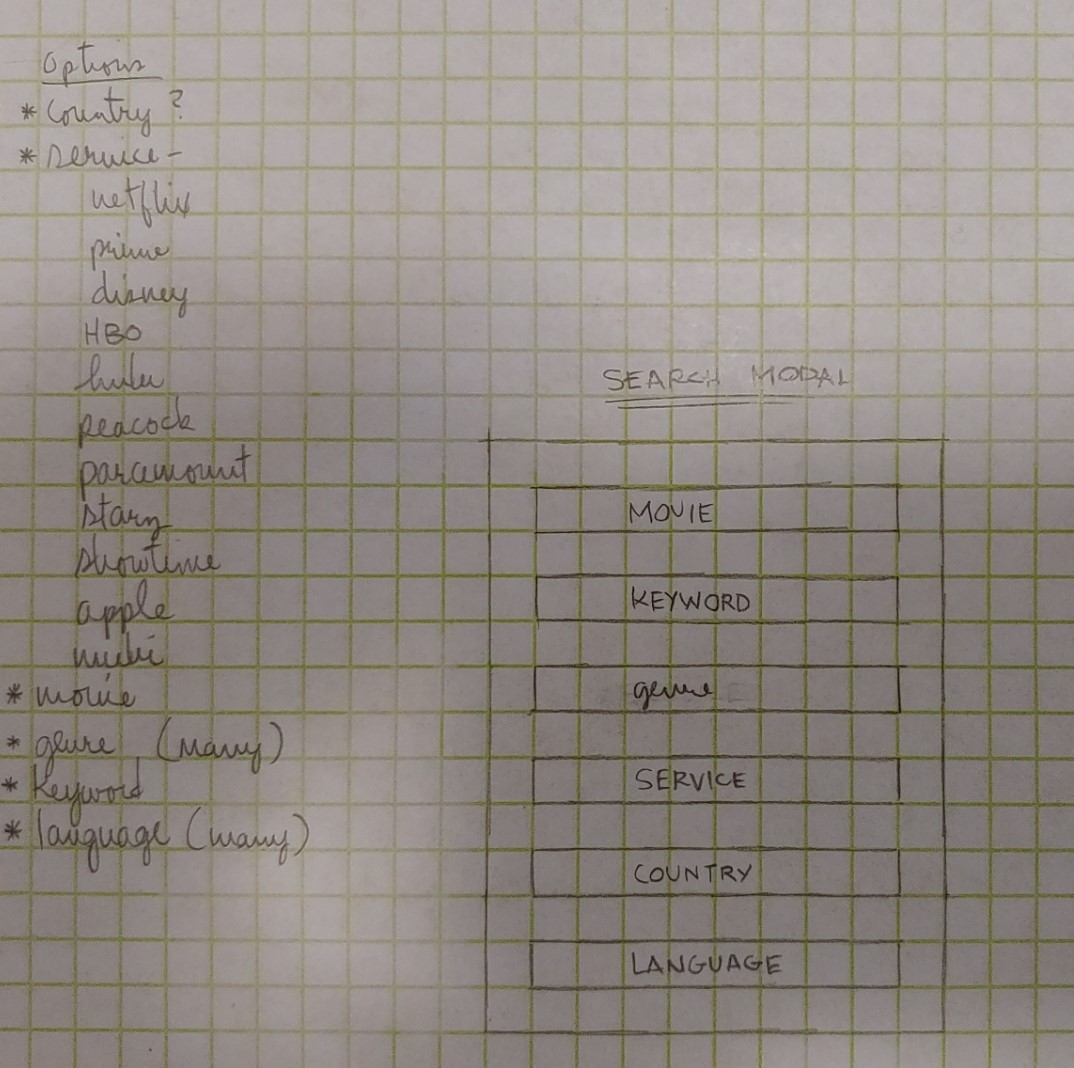 Options
* Country ?
* service -
netflix
prime
disney
HBO
hulu
peacock
paramount
starz
showtime
apple
mubi
* movie
* genre (many)
* Keyword
* language (many)
SEARCH MODAL
MOVIE
KEYWORD
genre
SERVICE
COUNTRY
LANGUAGE